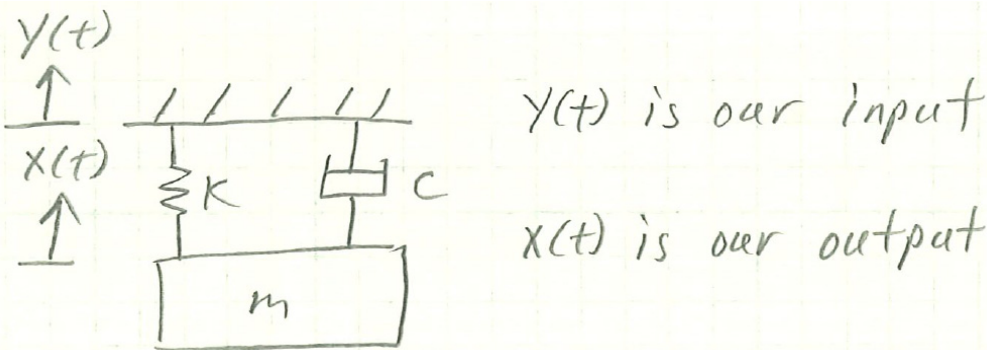 y(t)
x(t)
K
C
m
y(t) is our input
x(t) is our output